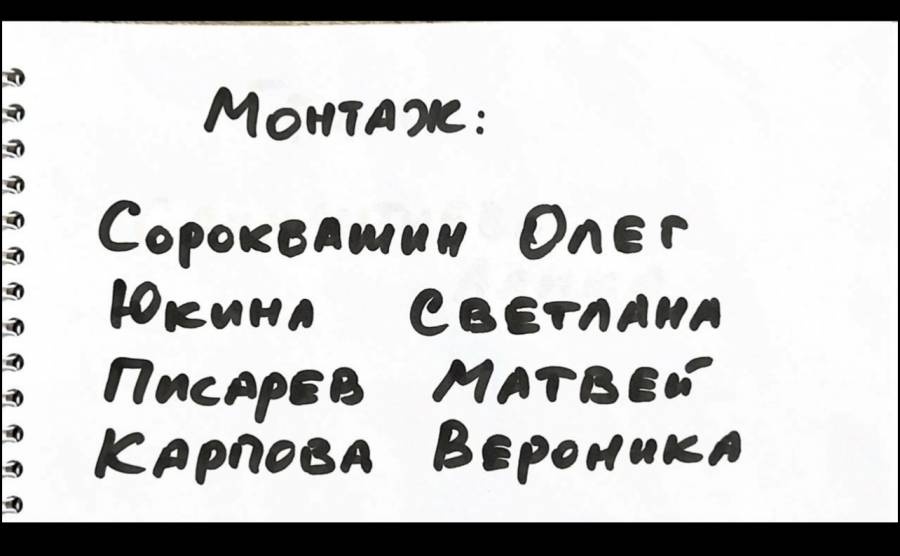 Монтаж:
Сороквашин Олег
Юкина Светлана
Писарев Матвей
Карпова Вероника